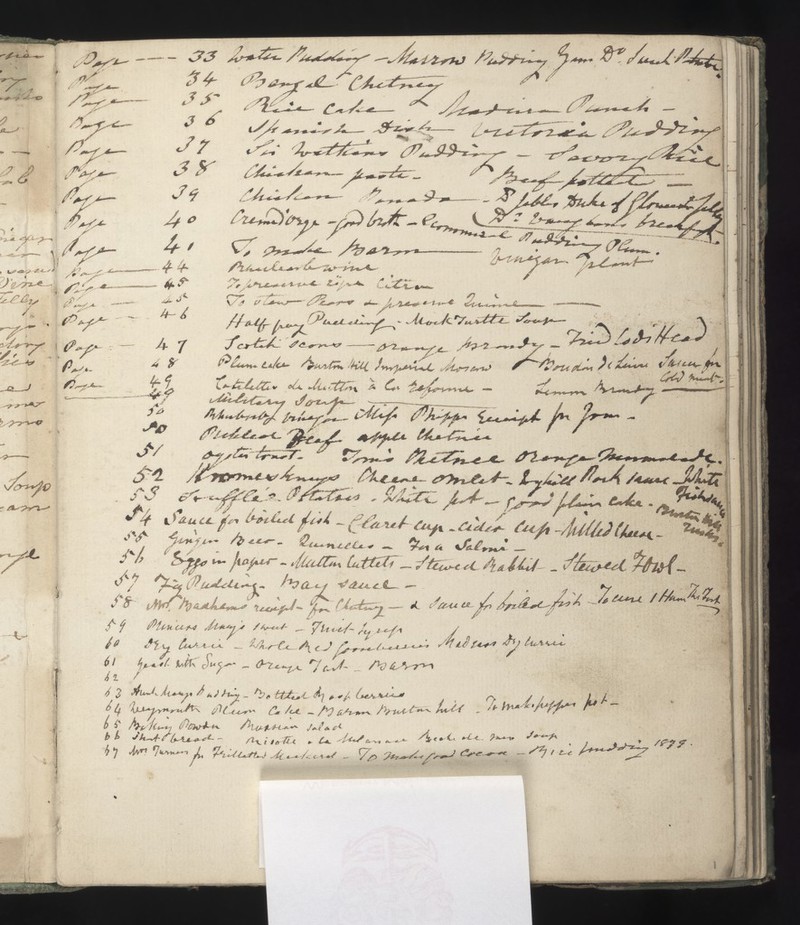 Page — 33 Water Pudding – Marrow Pudding Yam Do. Sweet Potatoe.
Page 34 Bengal Chetney
Page — 35 Rice Cake Madeira Punch –
Page 36 Spanish Dish Victoria Pudding
Page 37 Sir Watkins Pudding – Savory Rice
Page 38 Chicken paste – Beef potted –
Page 39 Chicken Panada – Duke of Gloucester Jelly
Page 40 Creme d'orge – good broth – Economical Pudding Plum. breakfast.
Page 41 To make Barm — Vinegar plant
Page 44 Rhubarb wine
Page 45 To preserve ripe Citron
Page 45 To stew Pears & preserve Quince —
Page — 46 Half pay Pudding. Mock Turtle Soup
Page — 47 Scotch Scons — Orange Brandy – Fried Cods Head
Page 48 Plum cake Burton Hill Imperial Boudin de Lievre Sauce for Cold meat.
Page 49 Cotelettes de Mutton à la Reforme – Lemon Brandy
49 Military Soup
50 Rhubarb vinegar Miss Phipps Receipt for
50 Pickled Beef apple Chetnee
51 Oyster toast. Tom's Chetnee Orange Marmalade.
52 Kromeskneys Cheese omlet – Rock Sauce – White Fish sauce
53 Souffle. Potatoes. White pot – good plain cake. Burton Hill rusks.
54 Sauce for boiled fish – Claret Cup – Cider Cup – Milled Cheese –
55 Ginger Beer – Quenelles – For a Salmi –
56 Eggs in paper – Mutton Cutlets – Stewed Rabbit – Stewed Fowl –
57 Fig Pudding – Bay sauce –
58 Mrs. Badhams receipt for Chetney – & Sauce for boiled fish – To cure 1 Ham
59 Princess Mary's – Fruit Syrup
60 Dry Currie – Whole Red Gooseberries Madras Dry Currie
61 Yeast with Sugar – Orange Tart – Barm
62
63 Pudding – Bottled Raspberries
64 Weymouth Plum Cake – Barm Burton Hill – To make pepper pot –
65 Baking Powder Russian Salad
66 Short bread – Risotto a la Milanaise soup
67 Mrs Turners for Filletted Mackerel – To make good Cocoa – Rice pudding 1899.